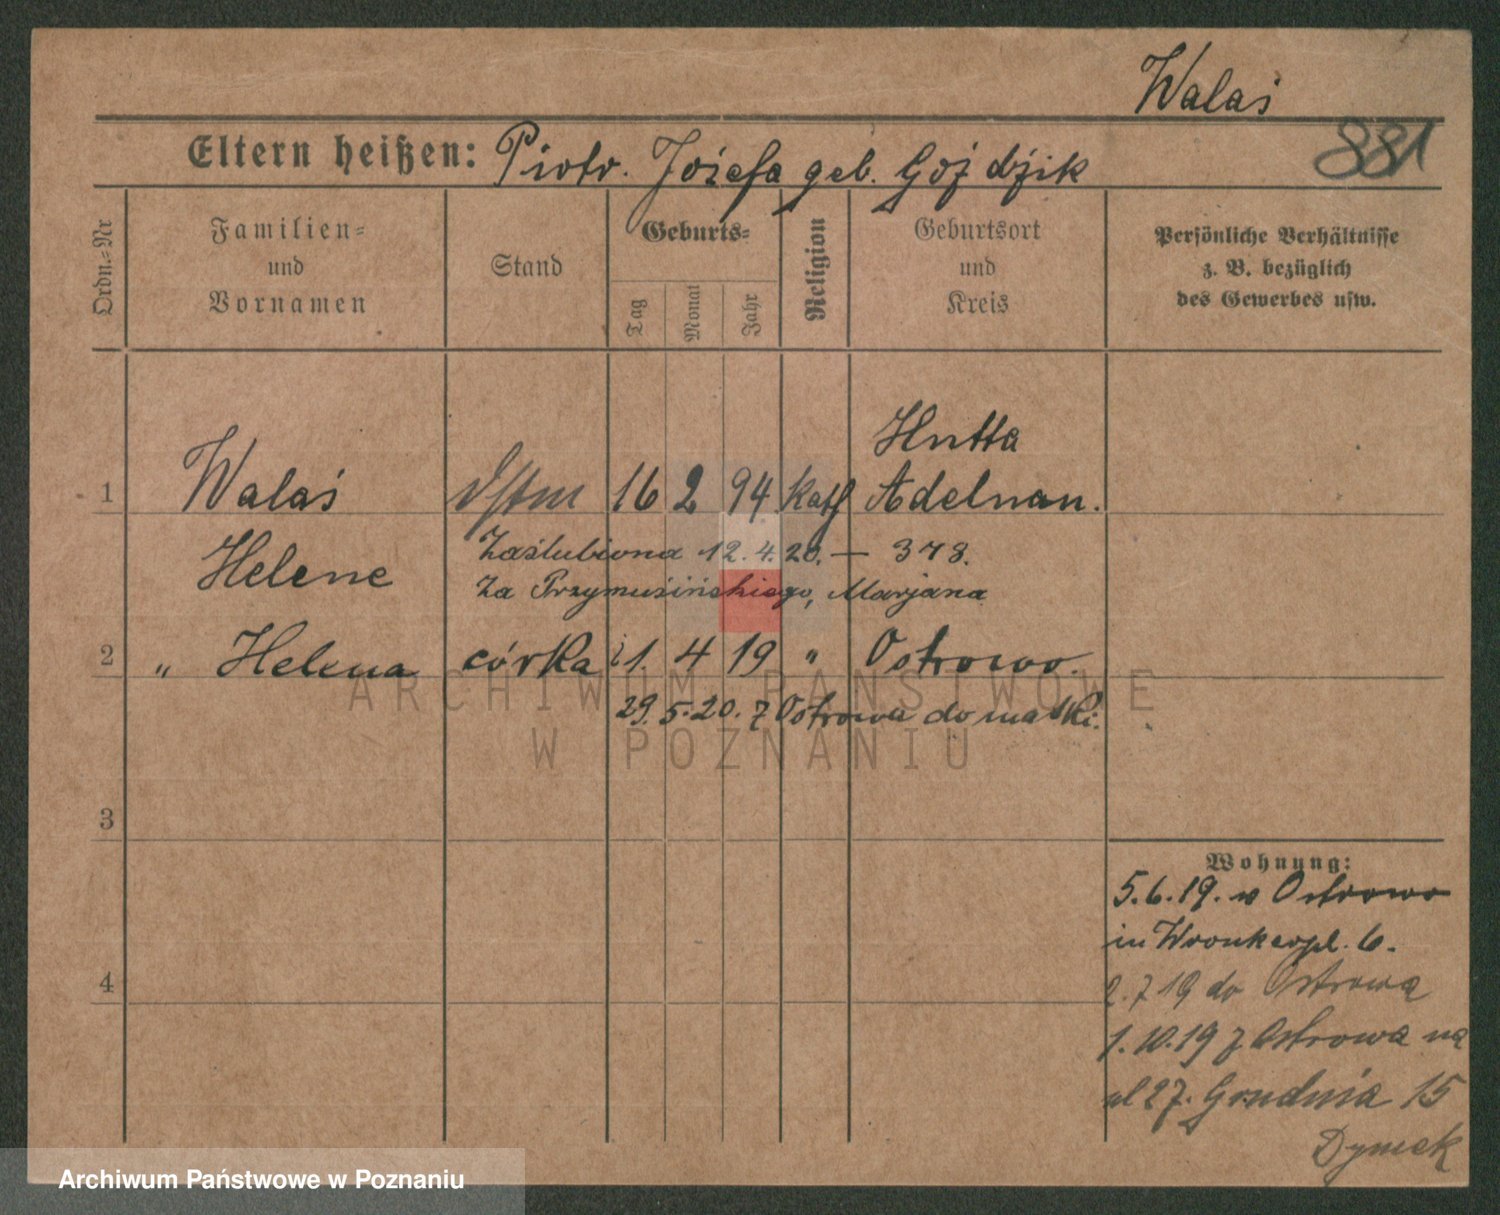 Walaś
881
Eltern heißen: Piotr. Józefa geb. Goździk
Ordn.=Nr
Familien=
und
Vornamen
Stand
Geburts=
Tag
Monat
Jahr
Religion
Geburtsort
und
Kreis
Persönliche Verhältnisse
z. B. bezüglich
des Gewerbes usw.
Hutta
1 Walaś 16 2 94 kath Adelnau.
Helene
Zaślubiona 12.4.20. — 378.
za Przymusińskiego, Marjana
2 " Helena córka 21. 4 19 " Ostrowo.
29. 5. 20. z Ostrowa do matki.
3
4
Wohnung:
5.6.19. w Ostrowo
in Wronkerpl. 6.
2.7 19 do Ostrowa
1.10.19 z Ostrowa na
ul 27. Grudnia 15
Dymek
ARCHIWUM PAŃSTWOWE
W POZNANIU
Archiwum Państwowe w Poznaniu